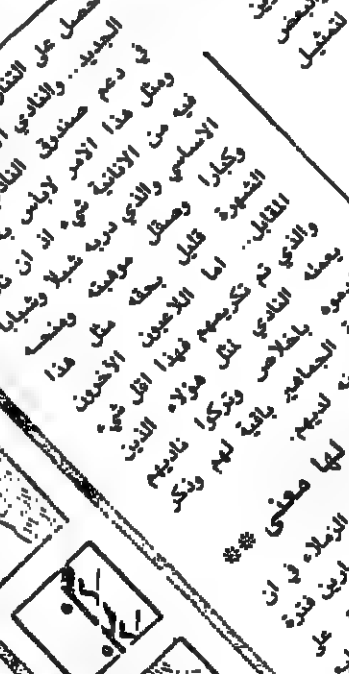 والبعض
لتمثيل
حصل على
الجديد.. والنادي
في دعم صندوق
ومثل هذا الامر لاباس
فيه من الانانية شيء اذ ان
الاساسي والذي دربه شبلا وشبابا
وكبارا وصقل موهبته ومنحه
الشهرة قليل بحقه مثل هذا
المقابل.. اما اللاعبون الآخرون
والذي تم تكريمهم فهذا اقل شيء
يعمله النادي لمثل هؤلاء الذين
باخلاص وتركوا ناديهم
الجماهير باقية لهم وتذكر
لديهم.
لها معنى **
الزملاء في ان
فترة
على